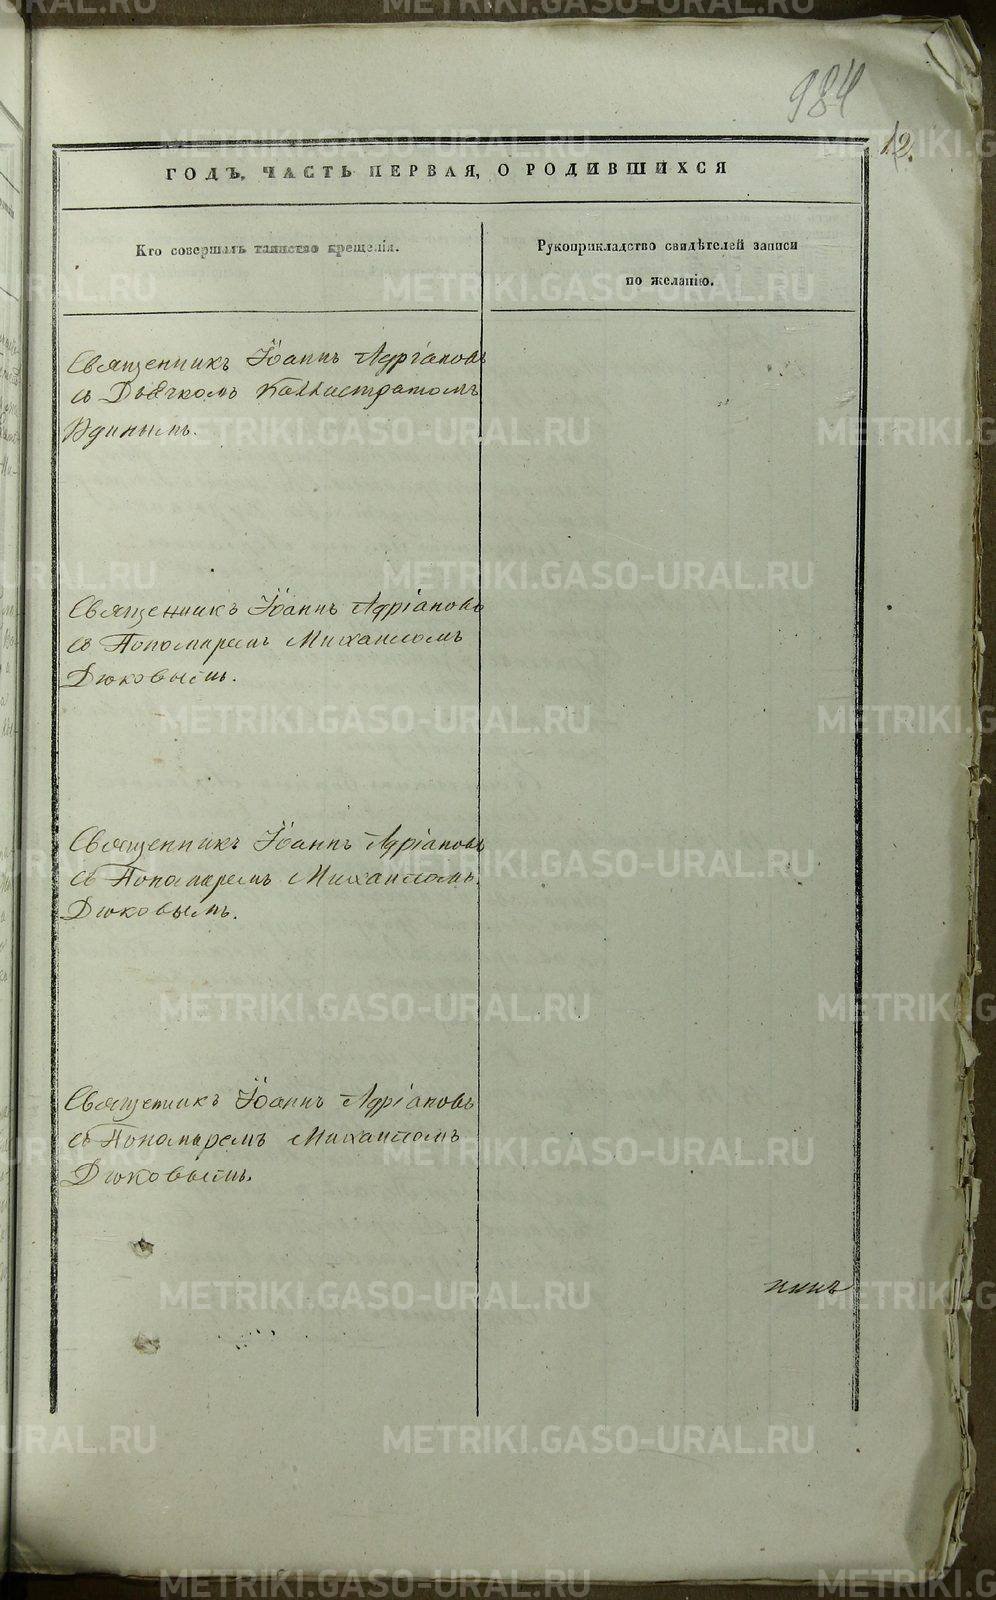 984
12.
ГОДЪ, ЧАСТЬ ПЕРВАЯ, О РОДИВШИХСЯ
Кто совершалъ таинство крещенія.
Рукоприкладство свидѣтелей записи
по желанію.
Священникъ Іоаннъ Адріановъ
съ Дьячкомъ Каллистратомъ
Удинымъ.
Священникъ Іоаннъ Адріановъ
съ Пономаремъ Михаиломъ
Дюковымъ.
Священникъ Іоаннъ Адріановъ
съ Пономаремъ Михаиломъ
Дюковымъ.
Священникъ Іоаннъ Адріановъ
съ Пономаремъ Михаиломъ
Дюковымъ.
METRIKI.GASO-URAL.RU